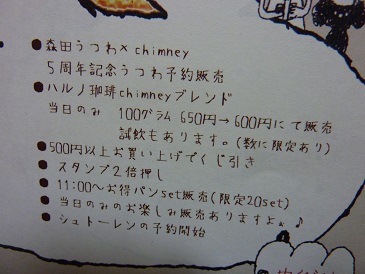 ●森田うつわ×chimney
５周年記念うつわ予約販売
●ハルノ珈琲chimneyブレンド
当日のみ 100グラム 650円→600円にて販売
試飲もあります。(数に限定あり)
●500円以上お買い上げでくじ引き
●スタンプ2倍押し
●11:00〜お得パンset販売(限定20set)
●当日のみのお楽しみ販売ありますよ♪
●シュトーレンの予約開始